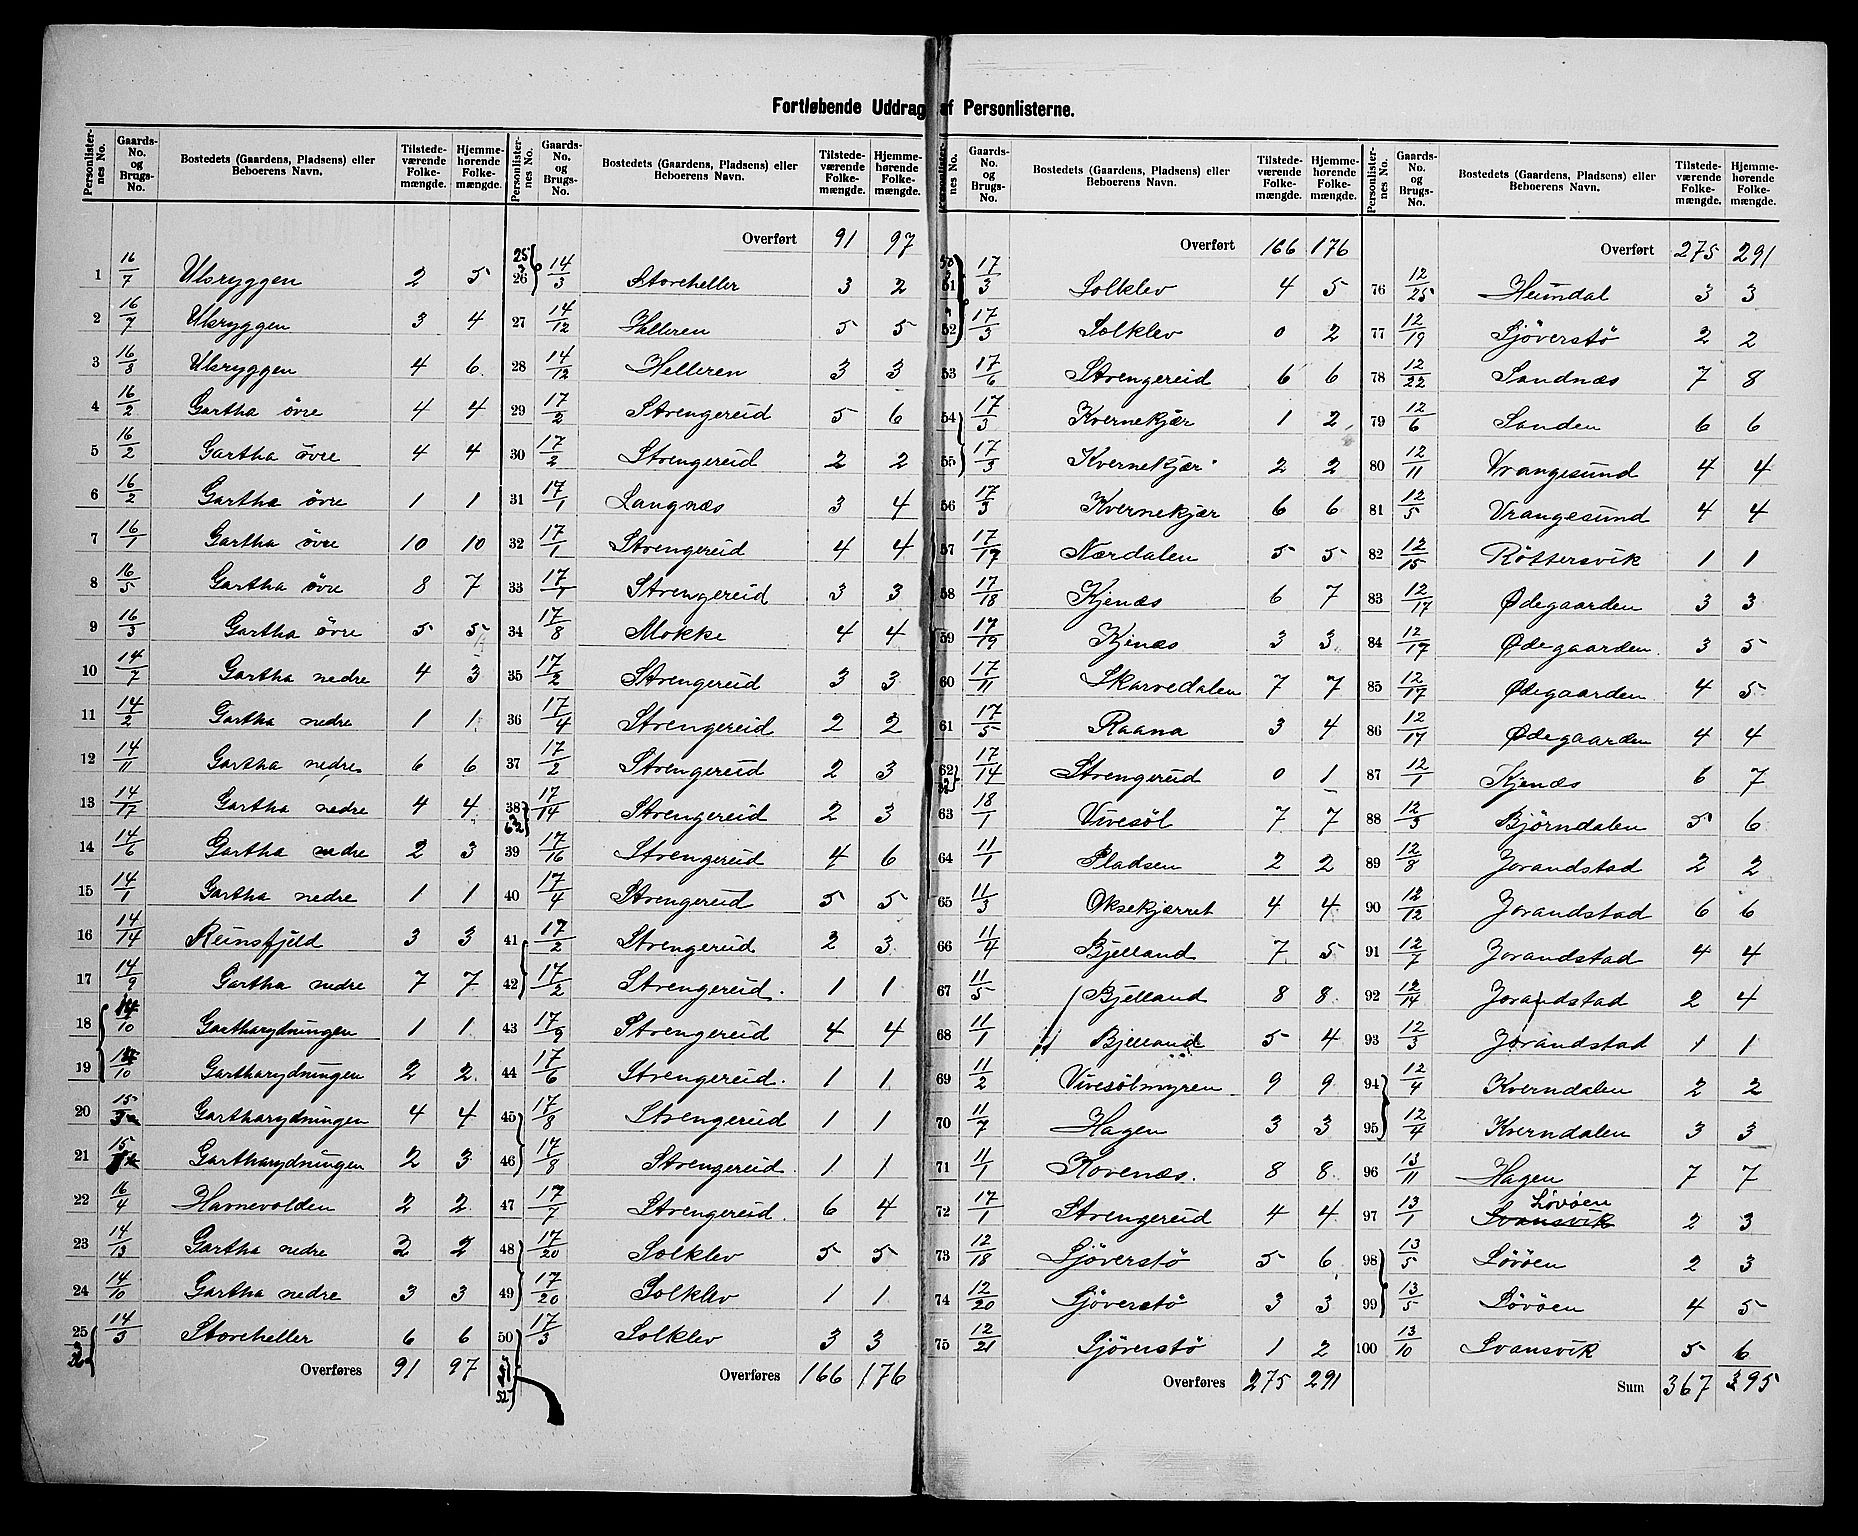 Fortløbende Uddrag af Personlisterne.
Personlister-nes No. | Gaards-No. og Brugs-No. | Bostedets (Gaardens, Pladsens) eller Beboerens Navn. | Tilstede-værende Folke-mængde. | Hjemme-hørende Folke-mængde.
1 16/7 Ulsryggen 2 5
2 16/7 Ulsryggen 3 4
3 16/8 Ulsryggen 4 6
4 16/2 Gartha övre 4 4
5 16/2 Gartha övre 4 4
6 16/2 Gartha övre 1 1
7 16/1 Gartha övre 10 10
8 16/5 Gartha övre 8 7
9 16/3 Gartha övre 5 5
10 14/7 Gartha nedre 4 3
11 14/2 Gartha nedre 1 1
12 14/11 Gartha nedre 6 6
13 14/17 Gartha nedre 4 4
14 14/6 Gartha nedre 2 3
15 14/1 Gartha nedre 1 1
16 14/14 Reinsfjeld 3 3
17 14/9 Gartha nedre 7 7
18 14/10 Gartharydningen 1 1
19 14/10 Gartharydningen 2 2
20 15 Gartharydningen 4 4
21 15 Gartharydningen 2 3
22 16/4 Havnevolden 2 2
23 14/13 Gartha nedre 2 2
24 14/10 Gartha nedre 3 3
25 14/3 Storeheller 6 6
Overføres 91 97
Personlister-nes No. | Gaards-No. og Brugs-No. | Bostedets (Gaardens, Pladsens) eller Beboerens Navn. | Tilstede-værende Folke-mængde. | Hjemme-hørende Folke-mængde.
Overført 91 97
25
26 14/3 Storeheller 3 2
27 14/12 Helleren 5 5
28 14/12 Helleren 3 3
29 17/2 Strengereid 5 6
30 17/2 Strengereid 2 2
31 17/1 Langnæs 3 4
32 17/1 Strengereid 4 4
33 17/1 Strengereid 3 3
34 17/8 Mokke 4 4
35 17/2 Strengereid 3 3
36 17/4 Strengereid 2 2
37 17/2 Strengereid 2 3
38 17/14 Strengereid 2 3
62
39 17/16 Strengereid 4 6
40 17/4 Strengereid 5 5
41 17/2 Strengereid 2 3
42 17/2 Strengereid. 1 1
43 17/9 Strengereid 4 4
44 17/6 Strengereid. 1 1
45 17/8 Strengereid 1 1
46 17/8 Strengereid 1 1
47 17/7 Strengereid. 6 4
48 17/20 Solklev 5 5
49 17/20 Solklev 1 1
50 17/3 Solklev 3 3
Overføres 166 176
51
52
Personlister-nes No. | Gaards-No. og Brugs-No. | Bostedets (Gaardens, Pladsens) eller Beboerens Navn. | Tilstede-værende Folke-mængde. | Hjemme-hørende Folke-mængde.
Overført 166 176
50
51 17/3 Solklev 4 5
52 17/3 Solklev 0 2
53 17/6 Strengereid 6 6
54 17/3 Kvernekjær 1 2
55 17/3 Kvernekjær 2 2
56 17/3 Kvernekjær 6 6
57 17/17 Nærdalen 5 5
58 17/18 Kjenæs 6 7
59 17/19 Kjenæs 3 3
60 17/11 Skarvedalen 7 7
61 17/5 Raana 3 4
62 17/14 Strengereid 0 1
63 18/1 Vivesöl 7 7
64 11/1 Pladsen 2 2
65 11/3 Oksekjærret 4 4
66 11/4 Bjelland 7 5
67 11/5 Bjelland 8 8
68 11/1 Bjelland 5 4
69 11/2 Vivesölmyren 9 9
70 11/7 Hagen 3 3
71 11/1 Kovenæs. 8 8
72 17/1 Strengereid 4 4
73 12/18 Sjöverstö 5 6
74 12/20 Sjöverstö 3 3
75 12/21 Sjöverstö 1 2
Overføres 275 291
Personlister-nes No. | Gaards-No. og Brugs-No. | Bostedets (Gaardens, Pladsens) eller Beboerens Navn. | Tilstede-værende Folke-mængde. | Hjemme-hørende Folke-mængde.
Overført 275 291
76 12/25 Heimdal 3 3
77 12/19 Sjöverstö 2 2
78 12/22 Sandnæs 7 8
79 12/6 Sanden 6 6
80 12/11 Vrangesund 4 4
81 12/5 Vrangesund 4 4
82 12/15 Röttersvik 1 1
83 12/17 Ødegaarden 3 3
84 12/17 Ødegaarden. 3 5
85 12/17 Ødegaarden 4 5
86 12/17 Ødegaarden 4 4
87 12/1 Kjenæs 6 7
88 12/3 Björndalen 5 6
89 12/8 Jorandstad 2 2
90 12/12 Jorandstad 6 6
91 12/7 Jorandstad 4 4
92 12/14 Jorandstad 2 4
93 12/3 Jorandstad 1 1
94 12/4 Kverndalen 2 2
95 12/4 Kverndalen 3 3
96 13/11 Hagen 7 7
Lövöen
97 13/1 Svansvik 2 3
98 13/5 Lövöen 2 3
99 13/5 Lövöen 4 5
100 13/10 Svansvik 5 6
Sum 367 395